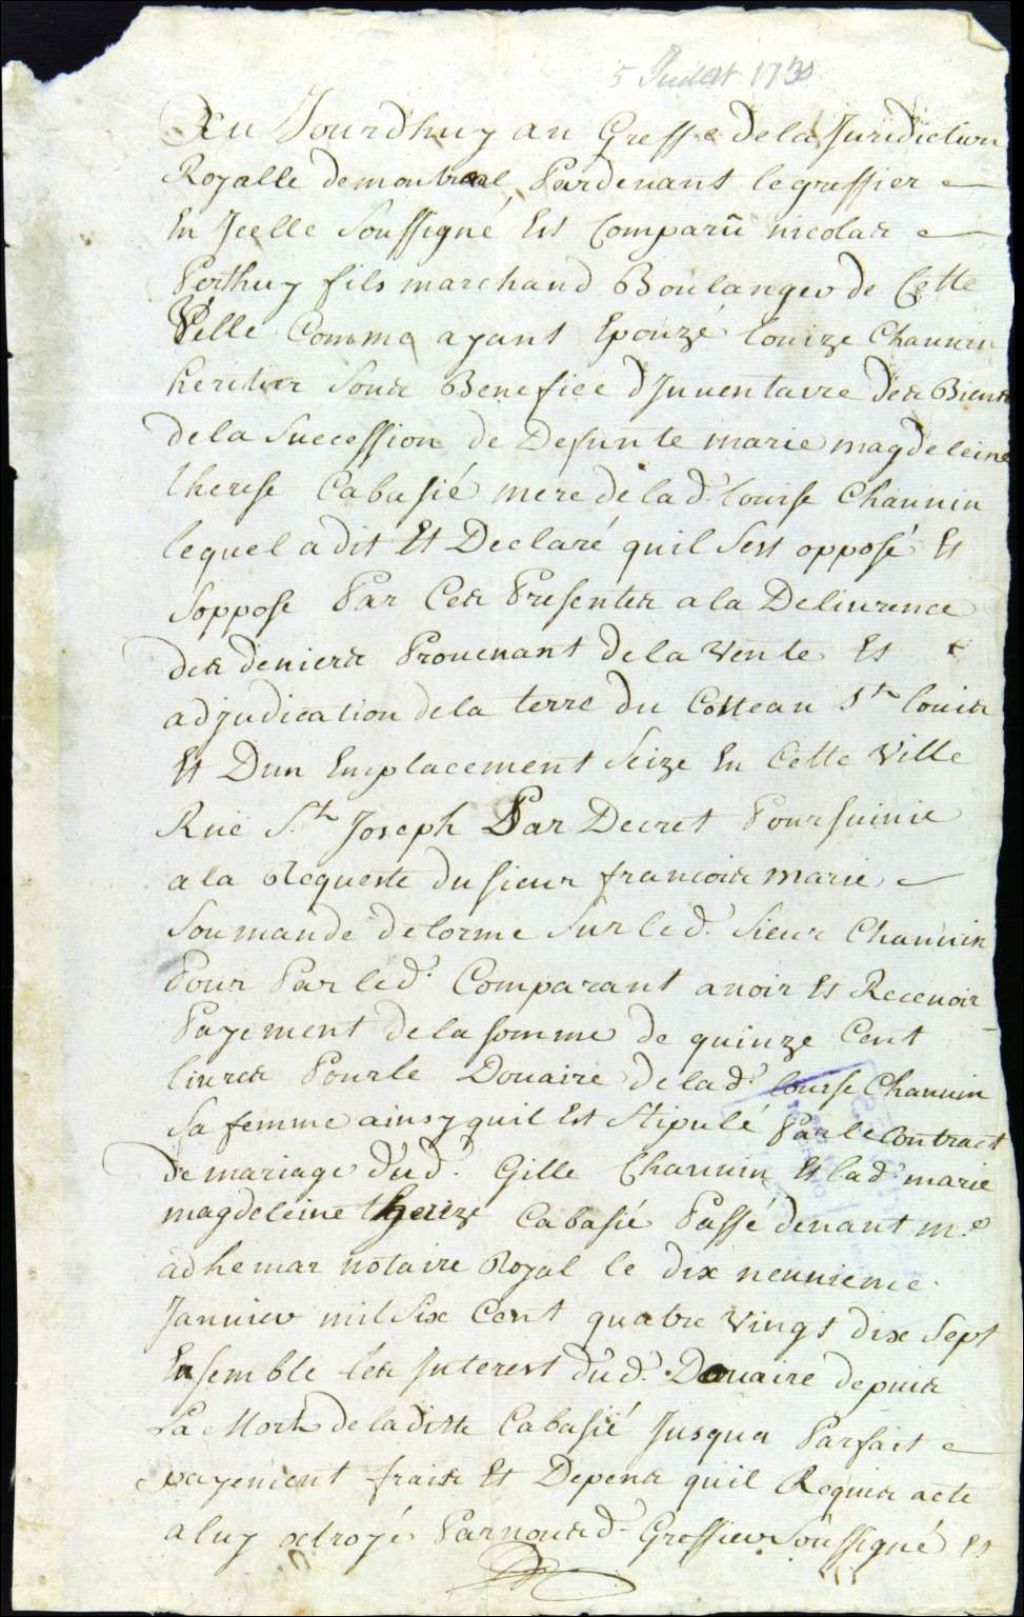 5 Juillet 1730
Au Jourdhuy au Greffe de la Juridiction
Royalle de montreal Pardevant le greffier
En Jcelle Soussigné Est Comparû nicolas
Perthuy fils marchand Boulanger de Cette
Ville Comme ayant Epouzé Louize Chauvin
heritier Sous Benefice dJnventaire des Biens
de la Succession de Defunte marie magdeleine
therese Cabasié mere de lad. Louise Chauvin
lequel a dit Et Declaré quil Sest opposé Et
Soppose Par Ces Presentes a la Delivrence
des deniers Provenant de la Vente Et
adjudication de la terre du Costeau St. Louis
Et Dun Emplacement Seize En Cette Ville
Rue St. Joseph Par Decret Poursuivie
a la Requeste du sieur francois marie
Soumande delorme Sur led. Sieur Chauvin
Pour Par led. Comparant avoir Et Recevoir
Payement de la somme de quinze Cent
livres Pour le Douaire de lad. Louise Chauvin
Sa femme ainsy quil Est Stipulé Par le Contract
de mariage dud. Gille Chauvin Et lad. marie
magdeleine therize Cabasié Passé devant me.
adhemar notaire Royal le dix neuvieme
Janvier mil Six Cent quatre Vingt dix Sept
Ensemble les Jnterest dud. Douaire depuis
La Mort de laditte Cabasié Jusqua Parfait
payement frais Et Depens quil Requis acte
a luy octroyé Par nous d. Greffier Soussigné Et